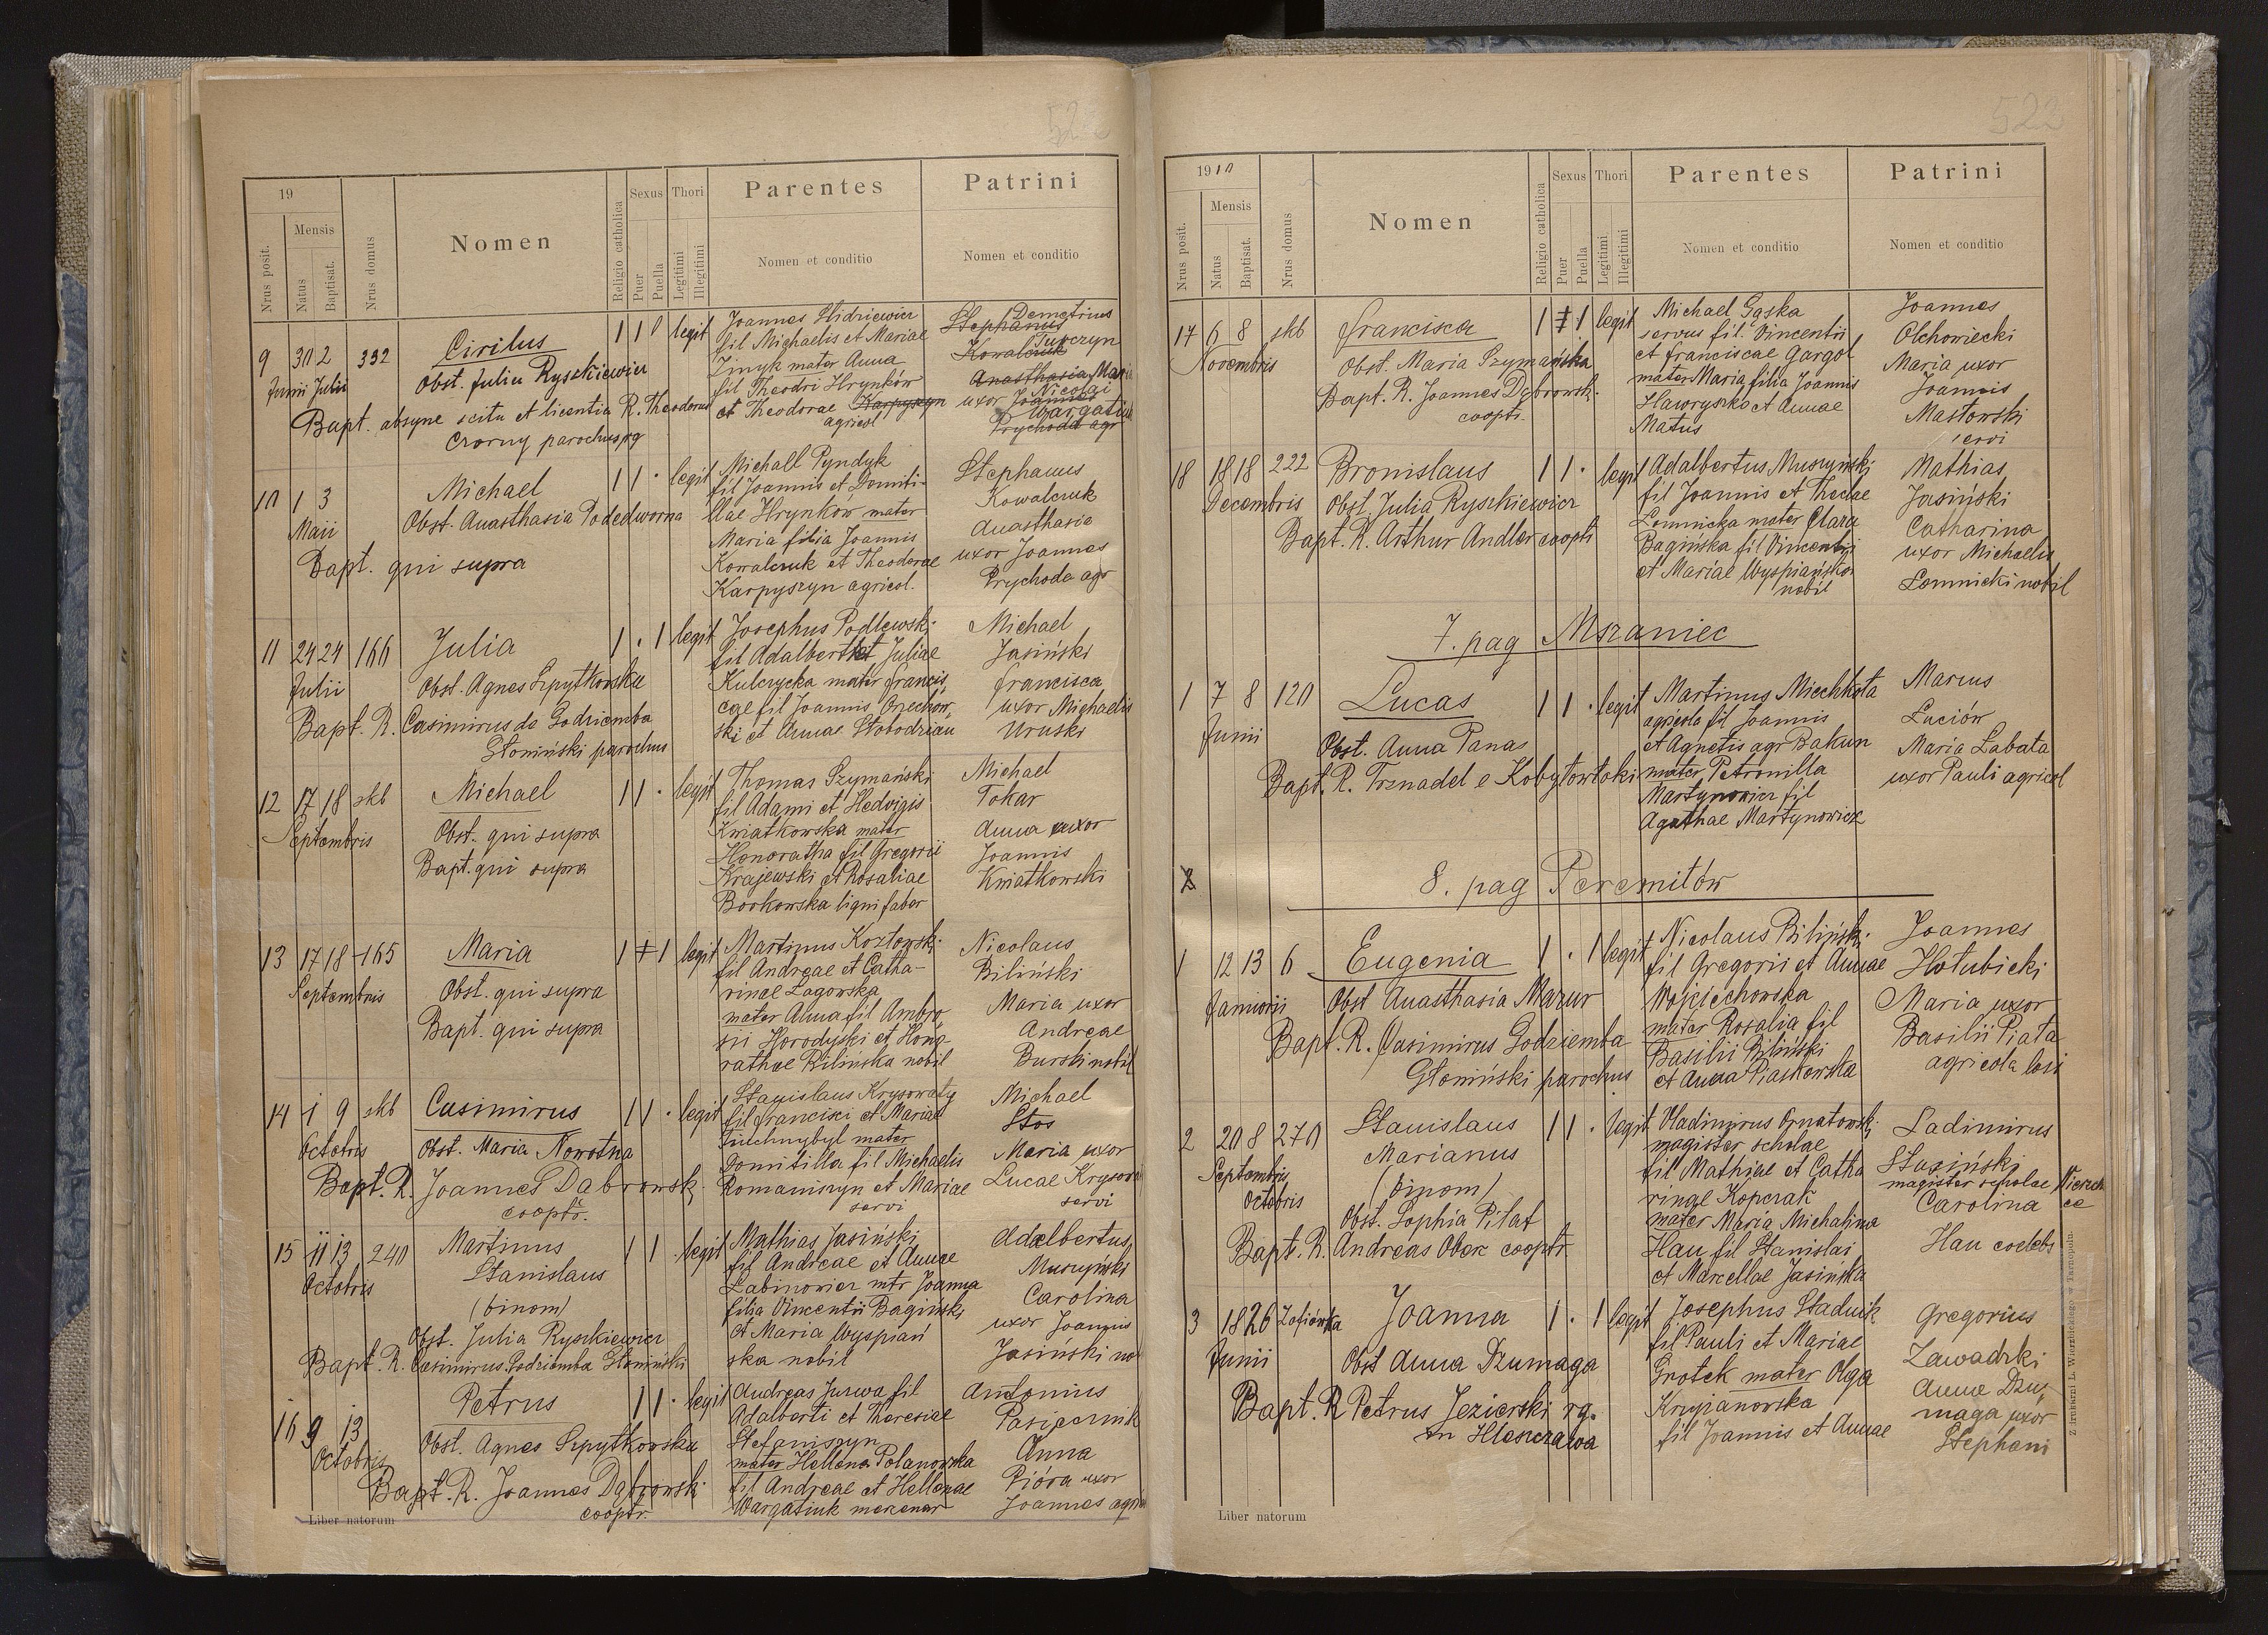 522
19
Nrus posit.
Mensis
Natus
Baptisat.
Nrus domus
Nomen
Religio catholica
Sexus
Puer
Puella
Thori
Legitimi
Illegitimi
Parentes
Nomen et conditio
Patrini
Nomen et conditio
9 30 2 332 Cirilus 1 1 0 legit
Junii Julii Obst. Julia Ryszkiewicz
Bapt. absque scitu et licentia R. Theodorus
Czorny parochus rg
Joannes Hidziewicz
fil Michaelis et Mariae
Zmyk mater Anna
fil Theodri Hrynków
et Theodorae Karpyszyn
agricol
Demetrius
Stephanus
Jurczyn
Kowalczuk
Anasthasia Maria
Nicolai
uxor Joannes
Wargatiuk
Prychoda agr
10 1 3 Michael 1 1 · legit
Maii Obst. Anasthasia Podedworna
Bapt. qui supra
Michall Pyndyk
fil Joannis et Domiti-
llae Hrynków mater
Maria filia Joannis
Kowalczuk et Theodorae
Karpyszyn agricol.
Stephanus
Kowalczuk
Anasthasia
uxor Joannes
Prychoda agr
11 24 24 166 Julia 1 · 1 legit
Julii Obst. Agnes Szpytkowska
Bapt. R. Casimirus de Godziemba
Słoniński parochus
Josephus Podlewski
fil Adalberti et Juliae
Kulczycka mater Francis
cae fil Joannis Orzechow
ski et Annae Słobodzian
Michael
Jasiński
Francisca
uxor Michaelis
Uruski
12 17 18 skb Michael 1 1 · legit
Septembris Obst. qui supra
Bapt. qui supra
Thomas Szymański
fil Adami et Hedvigis
Kwiatkowska mater
Honoratha fil Gregorii
Krajewski et Rosaliae
Borkowska ligni faber
Michael
Tokar
Anna uxor
Joannis
Kwiatkowski
13 17 18 165 Maria 1 ‡ 1 legit
Septembris Obst. qui supra
Bapt. qui supra
Martinus Kozłowski
fil Andreae et Catha-
rinae Łagowska
mater Anna fil Ambro
sii Horodyski et Hono
rathae Bilinska nobil
Nicolaus
Biliński
Maria uxor
Andreae
Burski nobil
14 1 9 skb Casimirus 1 1 · legit
Octobris Obst. Maria Nowotna
Bapt. R. Joannes Dąbrowski
cooptr.
Stanislaus Krysowaty
fil Francisci et Mariae
mater
Domitilla fil Michaelis
Romaniszyn et Mariae
servi
Michael
Stos
Maria uxor
Lucae Krysowa
servi
15 11 13 240 Martinus 1 1 legit
Octobris Stanislaus
(binom)
Obst. Julia Ryszkiewicz
Bapt. R. Casimirus Godziemba Słoniński
Mathias Jasiński
fil Andreae et Annae
Łabinowicz mtr Joanna
filia Vincentii Bagiński
et Maria Wyspiań
ska nobil
Adalbertus
Muszyński
Carolina
uxor Joannis
Jasiński no
16 9 13 Petrus 1 1 · legit
Octobris Obst. Agnes Szpytkowska
Bapt. R. Joannes Dąbrowski
cooptr.
Andreas Jurwa fil
Adalberti et Theresiae
Stefaniszyn
mater Hellena Polanowska
fil Andreae et Hellenae
Wargatiuk mercenar
Antonius
Pasiecznik
Anna
Pióra uxor
Joannes agr
Liber natorum
522
1910
Nrus posit.
Mensis
Natus
Baptisat.
Nrus domus
Nomen
Religio catholica
Sexus
Puer
Puella
Thori
Legitimi
Illegitimi
Parentes
Nomen et conditio
Patrini
Nomen et conditio
17 6 8 skb Francisca 1 ‡ 1 legit
Novembris Obst. Maria Szymańska
Bapt. R. Joannes Dąbrowsk.
cooptr.
Michael Gąska
servus fil. Vincentii
et Franciscae Gargol
mater Maria filia Joannis
Hawryszko et Annae
Matus
Joannes
Olchowiecki
Maria uxor
Joannis
Masłowski
servi
18 18 18 222 Bronislaus 1 1 · legit
Decembris Obst. Julia Ryszkiewicz
Bapt. R. Arthur Andler cooptr
Adalbertus Muszyński
fil Joannis et Theclae
Łomnicka mater Clara
Bagińska fil Vincentii
et Mariae Wyspiańska
nobil
Mathias
Jasiński
Catharina
uxor Michaelis
Łomnicki nobil
7. pag Mszaniec
1 7 8 120 Lucas 1 1 · legit
Junii Obst. Anna Panas
Bapt. R. Trznadel e Kobyłowłoki
Martinus Miechkota
agricola fil Joannis
et Agnetis agr Bakun
mater Petronilla
Martynowicz fil
Agathae Martynowicz
Marcus
Luciów
Maria Łabata
uxor Pauli agricol
8. pag Peremiłów
1 12 13 6 Eugenia 1 · 1 legit
Januarii Obst Anasthasia Mazur
Bapt. R. Casimirus Godziemba
Słoniński parochus
Nicolaus Biliński
fil Gregorii et Annae
Wojciechowska
mater Rosalia fil
Basilii Biliński
et Anna Piaskowska
Joannes
Hołubicki
Maria uxor
Basilii Piata
agricola loci
2 20 8 270 Stanislaus 1 1 · legit
Septembris Marianus
Octobris (binom)
Obst. Sophia Piłat
Bapt. R. Andreas Obak cooptr
Vladimirus Ornatowski
magister scholae
fil Mathiae et Catha
rinae Kopczak
mater Maria Michalina
Hau fil Stanislai
et Marcellae Jasińska
Ladimirus
Stasiński
magister scholae
Carolina
Hau coelebs
3 18 26 Zofiówka Joanna 1 · 1 legit
Junii Obst Anna Dzumaga
Bapt. R Petrus Jezierski rg.
in Hleszczawa
Josephus Stadnik
fil Pauli et Mariae
Grotek mater Olga
Kryżanowska
fil Joannis et Annae
Gregorius
Zawadzki
Anna Dzu
maga uxor
Stephani
Liber natorum
Z drukarni L. Wierzbickiego w Tarnopolu.